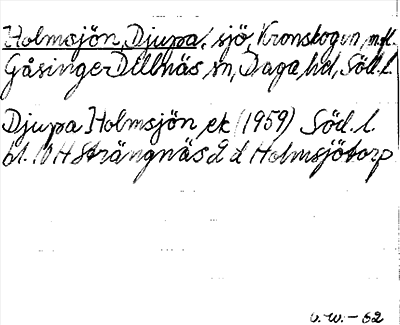 Holmsjön, Djupa, sjö, Kronskogen, mfl.
Gåsinge-Dillnäs sn, Daga hd, Söd. l.
Djupa Holmsjön ek (1959) Söd. l.
bl. 10 H Strängnäs 2 d Holmsjötorp
v.w. - 62